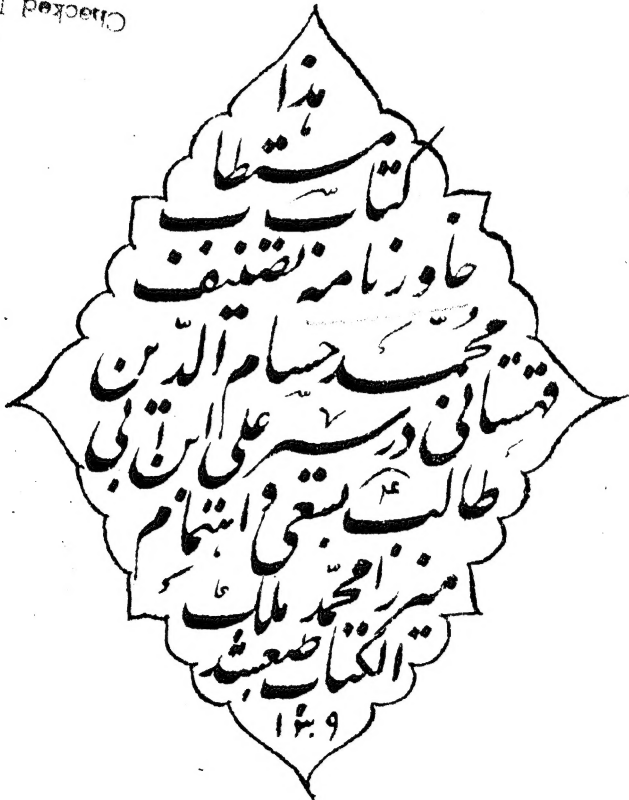 Checked
هذا
کتاب مستطاب
خاورنامه تصنیف
محمّد حسام الدّین
قهستانی در سیر علی ابن ابی
طالب ع بسعی و اهتمام
میرزا محمّد ملک
الکتاب طبع شد
۱۳۰۹